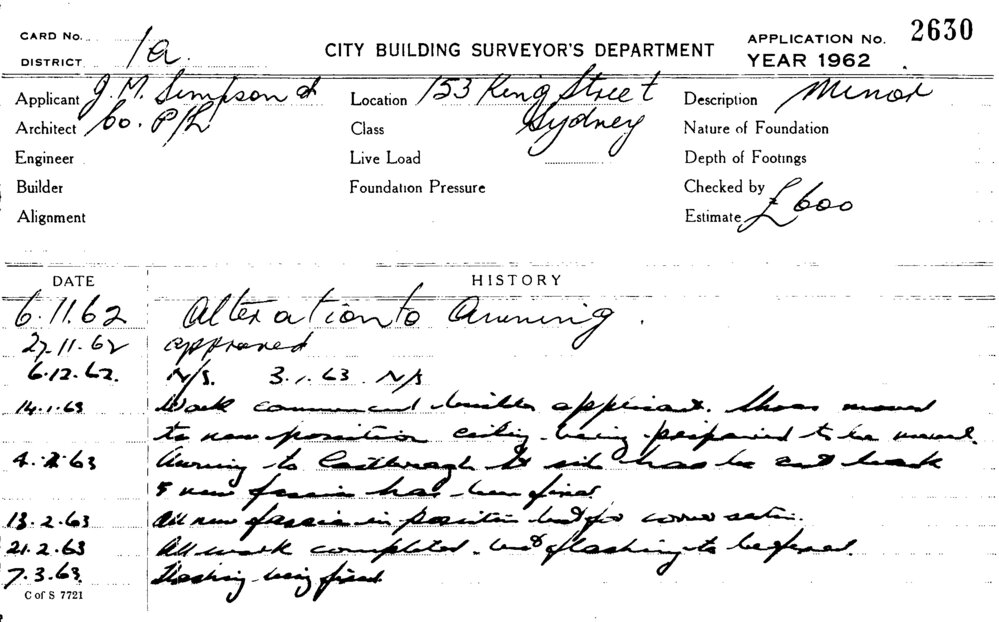 CARD No.
DISTRICT 1a
CITY BUILDING SURVEYOR'S DEPARTMENT
APPLICATION No. 2630
YEAR 1962
Applicant J. M. Simpson &
Architect Co. P/L
Engineer
Builder
Alignment
Location 153 King Street
Sydney
Class
Live Load
Foundation Pressure
Description Minor
Nature of Foundation
Depth of Footings
Checked by
Estimate £600
DATE HISTORY
6.11.62 Alteration to Awning.
27.11.62 approved
6.12.62. N/S. 3.1.63 N/S
14.1.63 Work commenced builder applicant. Shoes moved
to new position ceiling being prepared to be moved.
4.2.63 Awning to Castlereagh St side has be cut back
& new fascia has been fixed
13.2.63 All new fascia in position but for corner section.
21.2.63 All work completed but flashing to be fixed.
7.3.63 Flashing being fixed
C of S 7721